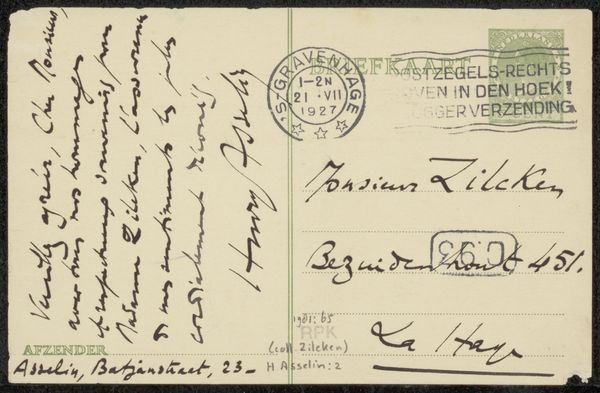 Veuillez agréer, Cher Monsieur,
avec tous nos hommages
et respectueux souvenirs pour
Madame Zilcken, l'assurance
de mes sentiments les plus
cordialement dévoués.
Henry Asselin
AFZENDER
Asselin, Batjanstraat, 23-
BRIEFKAART
NEDERLAND
'S-GRAVENHAGE
1-2N
21 VII
1927
POSTZEGELS-RECHTS
BOVEN IN DEN HOEK!
VLUGGER VERZENDING
Monsieur Zilcken
Bezuidenhout 451.
La Haye
1981:65
RPK
(coll. Zilcken)
H Asselin: 2